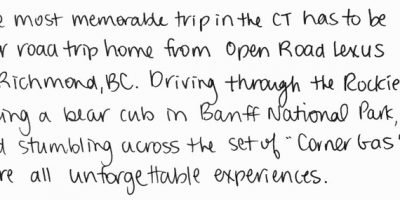 most memorable trip in the CT has to be
road trip home from Open Road Lexus
Richmond, BC. Driving through the Rockie
a bear cub in Banff National Park,
stumbling across the set of "Corner Gas"
all unforgettable experiences.